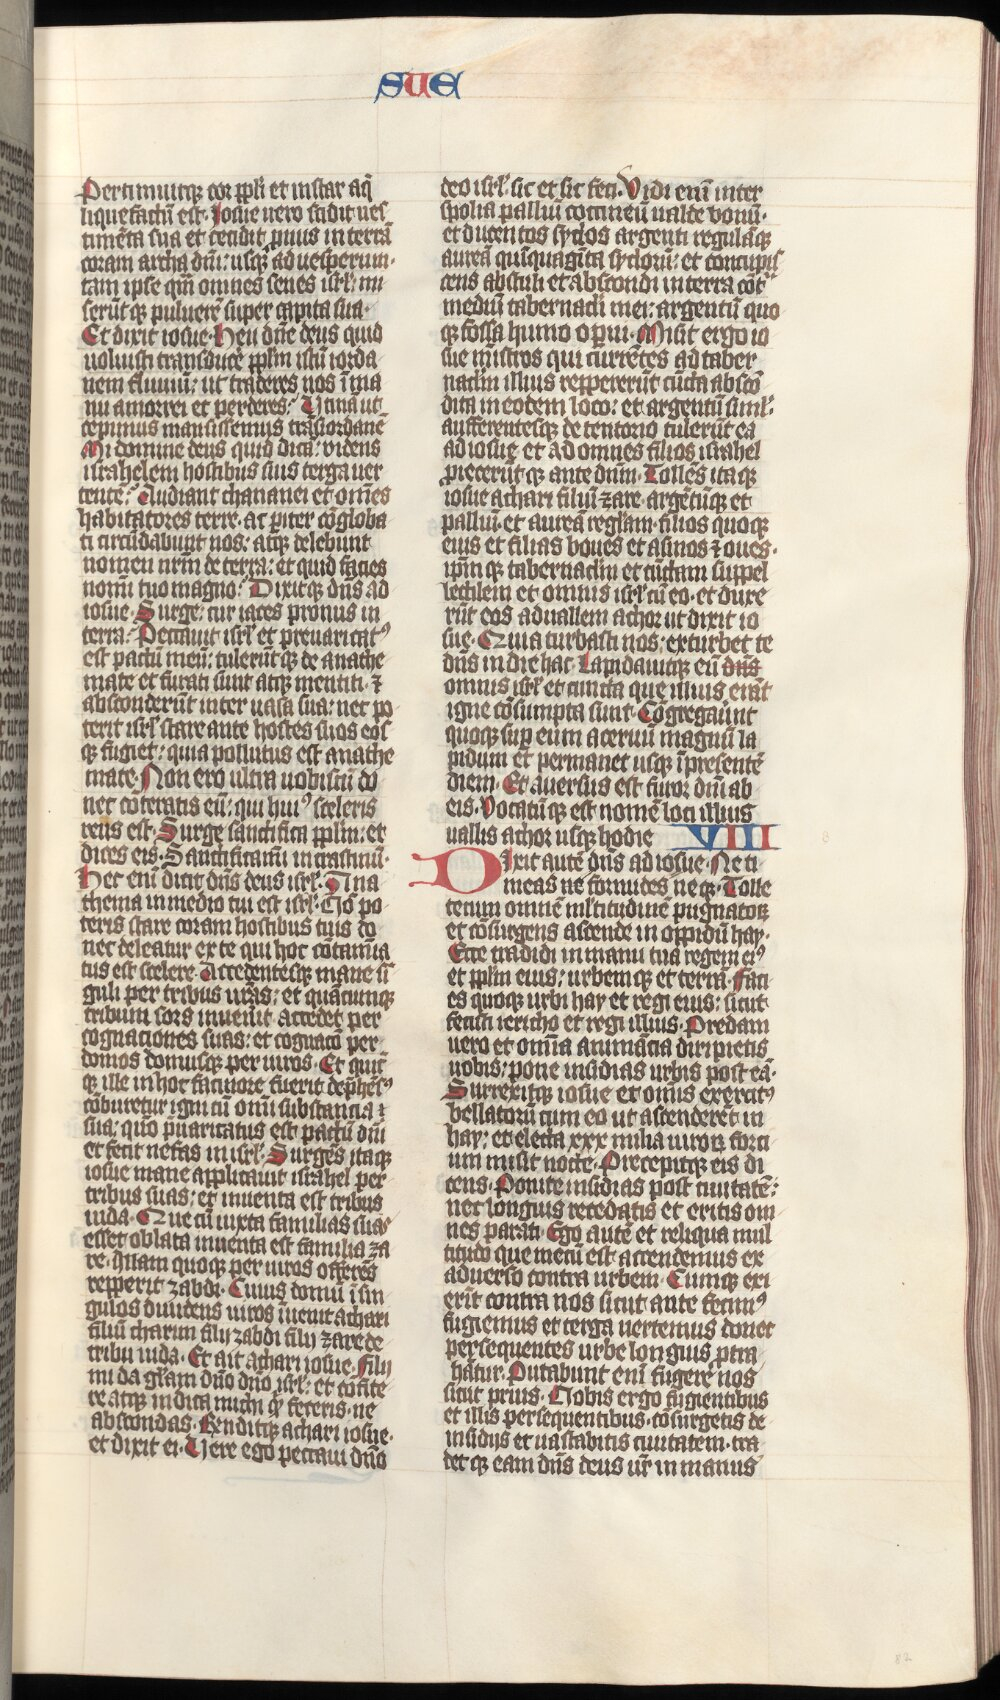 SUE
Pertimuitqꝫ cor ppli et instar aq̄
liquefactū est. Josue uero scidit ues
timēta sua et cecidit pnus in terrā
coram archa dnī: usqꝫ ad uesperum.
tam ipse qm̄ omnes senes isrl̄: mi
serūt qꝫ puluerē super capita sua.
Et dixit iosue. Heu dn̄e deus quid
uoluisti transducē pplm istū iorda
nem fluuiū: ut traderes nos ī ma
nu amorrei et perderes: Utinā ut
cepimus mansissemus trāsiordanē
Mi domine deus quid dicā: uidens
israhelem hostibus suis terga uer
tentē: Audiant chananei et om̄es
habitatores terre. ac piter cōgloba
ti circūdabunt nos: atqꝫ delebunt
nomen nr̄m de terra: et quid facies
nomī tuo magno: Dixitqꝫ dn̄s ad
iosue. Surge: cur iaces pronus in
terra: Peccauit isrl̄ et preuaricatꝰ
est pactū meū: tulerūtqꝫ de anathe
mate et furati sunt atqꝫ mentiti. ⁊
absconderūt inter uasa sua: nec po
terit isrl̄ stare ante hostes suos eos
qꝫ fugiet: quia pollutus est anathe
mate. Non ero ultra uobiscū do
nec coteratis eū: qui huiꝰ sceleris
reus est. Surge sanctifica pplm: et
dices eis. Sanctificamī in crastinū.
Hec enī dicit dn̄s deus isrl̄. Ana
thema in medio tui est isrl̄. Nō po
teris stare coram hostibus tuis do
nec deleatur ex te qui hoc cōtamīa
tus est scelere. Accedentesqꝫ mane sī
guli per tribus urās: et quācunqꝫ
tribum sors inuenit accedet per
cognaciones suas: et cognacō per
domos domusqꝫ per uiros. Et quic̄
qꝫ ille in hoc facinore fuerit dep̄hēsꝰ
cōburetur igni cū omī substancia
sua: quō p̄uaricatus est pactū dnī
et fecit nefas in isrl̄. Surgēs itaqꝫ
iosue mane applicauit israhel per
tribus suas: et inuenta est tribus
iuda. Que cū iuxta familias suas
esset oblata inuenta est familia za
re. Illam quoqꝫ per uiros offerēs
repperit zabdi. Cuius domū ī sin
gulos diuidens uiros īuenit achari
filiū charmi filij zabdi filij zare de
tribu iuda. Et ait achari iosue. Fili
mi da glām dn̄o dn̄o isrl̄: et cōfite
re atqꝫ indica michi qd feceris. ne
abscondas. Rn̄ditqꝫ achari iosue.
et dixit ei. Uere ego peccaui dn̄o
deo isrl̄. sic et sic feci. Vidi enī inter
spolia palliū coccineū ualde bonū.
et ducentos syclos argenti regulāqꝫ
aureā quīquagīta sycloꝝ: et concupis
cens abstuli et abscondi in terra cōt̄
mediū tabernacli mei: argentū quo
qꝫ fossa humo opui. Misit ergo io
sue mīstros qui currētes ad taber
naclm illius reppererūt cūcta abscō
dita in eodem loco: et argentū simul.
aufferentesqꝫ de tentorio tulerūt ea
ad iosue et ad omnes filios israhel
proiecerūtqꝫ ante dn̄m. Tollēs itaqꝫ
iosue achari filiū zare. argētūqꝫ et
palliū. et aureā reglam. filios quoqꝫ
eius et filias boues et asinos ⁊ oues.
ip̄m qꝫ tabernaclm et cūctam supel
lectilem et omnis isrl̄ cū eo. et duxe
rūt eos ad uallem achor ut dixit io
sue. Quia turbasti nos: exturbet te
dn̄s in die hac. Lapidauitqꝫ eū dn̄s
omnis isrl̄ et cuncta que illius erāt
igne cōsumpta sunt. Cōgregaūnt
quoqꝫ sup eum aceruū magnū la
pidum et permanet usqꝫ ī presentē
diem. Et auersus est furor dnī ab
eis. Vocatūqꝫ est nomē loci illius
uallis achor usqꝫ hodie VIII
Dixit autē dn̄s ad iosue. Ne ti
meas ne formides neqꝫ. Tolle
tecum omnē ml̄titudinē pugnatoꝝ
et cōsurgens ascende in oppidū hay.
Ecce tradidi in manu tua regem eiꝰ
et pplm eius: urbemqꝫ et terrā. Faci
es quoqꝫ urbi hay et regi eius: sicut
fecisti iericho et regi illius. Predam
uero et om̄ia animācia diripietis
uobis: pone insidias urbis post eā.
Surrexitqꝫ iosue et om̄is exercitꝰ
bellatorū cum eo ut ascenderēt in
hay: et electa xxx milia uiroꝝ forti
um misit nocte. Precepitqꝫ eis di
cens. Ponite insidias post ciuitatē:
nec longius recedatis et eritis om
nes parati. Ego autē et reliqua mul
titudo que mecū est accendemus ex
aduerso contra urbem. Cumqꝫ exi
erīt contra nos sicut ante fecimꝰ
fugiemus et terga uertemus donec
persequentes urbe longius ptra
hātur. Putabunt enī fugere nos
sicut prius. Nobis ergo fugientibus
et illis persequentibus. cōsurgetis de
insidijs et uastabitis ciuitatem. tra
det qꝫ eam dn̄s deus ur̄ in manus
87